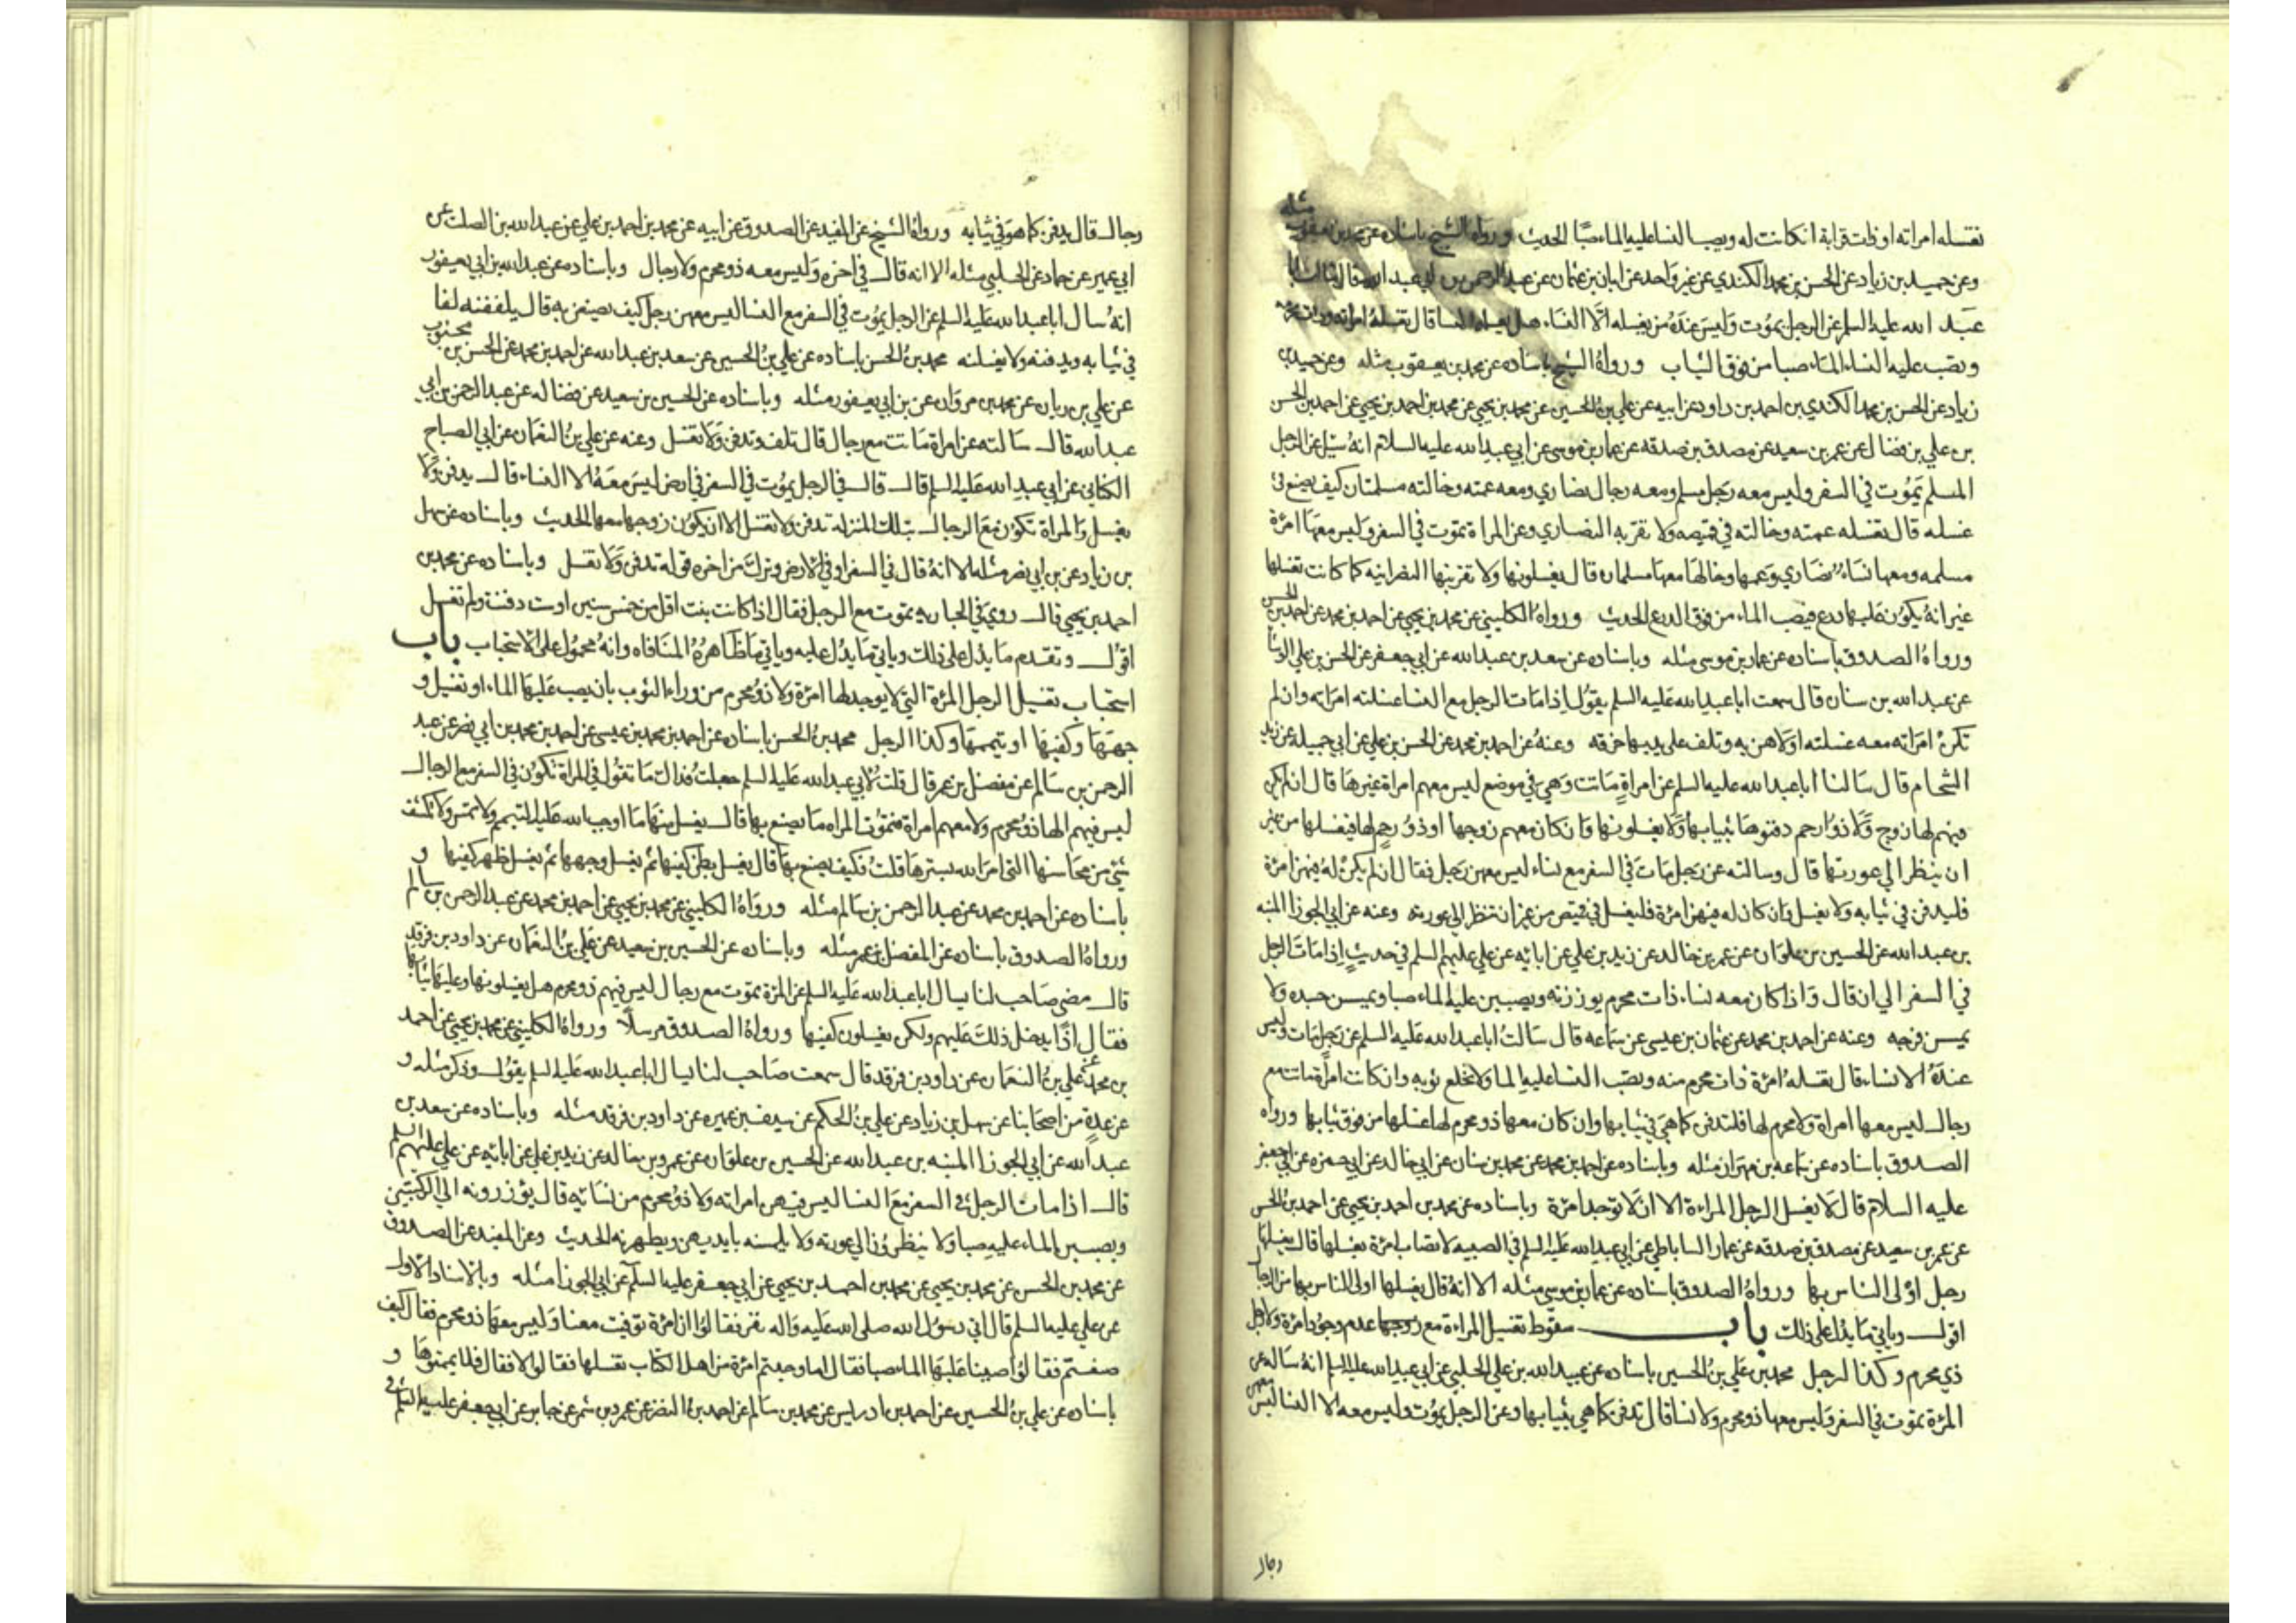 تغسله امراته او ذات قرابة ان كانت له ويصب النسا عليه الماء صبّا الحديث ورواه الشيخ باسناده عن محمد بن يعقوب مثله
وعن حميد بن زياد عن الحسن بن محمد الكندي عن غير واحد عن ابان بن عثمان عن عبد الرحمن بن ابي عبد الله قال سالت ابا
عبد الله عليه السلم عن الرجل يموت وليس عنده من يغسله الّا النساء هل يغسله النسا قال تغسله امراته وذات محرمه
وتصب عليه النساء الماء صبا من فوق الثياب ورواه الشيخ باسناده عن محمد بن يعقوب مثله وعن حميد بن
زياد عن الحسن بن محمد الكندي بن احمد بن داود عن ابيه عن علي بن الحسين عن محمد بن يحيى عن محمد بن احمد بن يحيى عن احمد بن الحسن
بن علي بن فضال عن عمر بن سعيد عن مصدق بن صدقه عن عمار بن موسى عن ابي عبد الله عليه السلام انه سئل عن الرجل
المسلم يموت في السفر وليس معه رجل مسلم ومعه رجال نصاري ومعه عمته وخالته مسلمتان كيف يصنع في
غسله قال تغسله عمته وخالته في قميصه ولا تقربه النصاري وعن المراة تموت في السفر وليس معها امرئة
مسلمه ومعها نساء نصاري وعمها وخالها معها مسلمان قال يغسلونها ولا تقربنها النصرانيه كما كانت تغسلها
غير انه يكون عليها درع فيصب الماء من فوق الدرع الحديث ورواه الكليني عن محمد بن يحيى عن احمد بن محمد عن احمد بن الحسن
ورواه الصدوق باسناده عن عمار بن موسى مثله وباسناده عن سعد بن عبد الله عن ابي جعفر عن الحسن بن علي الوشا
عن عبد الله بن سنان قال سمعت ابا عبد الله عليه السلم يقول اذا مات الرجل مع النسا غسلته امراته وان لم
تكن امراته معه غسلته اولاهن به وتلف على يديها خرقه وعنه عن احمد بن محمد عن الحسن بن علي عن ابي جميله عن زيد
الشحام قال سالنا ابا عبد الله عليه السلم عن امراة ماتت وهي في موضع ليس معهم امراة غيرها قال ان لم يكن
فيهم لها زوج ولا ذو رحم دفنوها بثيابها ولا يغسلونها وان كان معهم زوجها او ذو رحم لها فيغسلها من غير
ان ينظر الى عورتها قال وسالته عن رجل مات في السفر مع نساء ليس معهن رجل فقال ان لم يكن له فيهن امرئة
فليدفن في ثيابه ولا يغسل وان كان له فيهن امرئة فليغسل في قميص من غير ان تنظر الى عورته وعنه عن ابي الجوزا المنبه
بن عبد الله عن الحسين بن علوان عن عمر بن خالد عن زيد بن علي عن ابائه عن علي عليهم السلم في حديث اذا مات الرجل
في السفر الى ان قال واذا كان معه نساء ذات محرم يوزرنه ويصببن عليه الماء صبا ويمسسن جسده ولا
يمسسن فرجه وعنه عن احمد بن محمد عن عثمان بن عيسى عن سماعه قال سالت ابا عبد الله عليه السلم عن رجل مات وليس
عنده الا نساء قال تغسله امرئة ذات محرم منه وتصب النسا عليه الما ولا تخلع ثوبه وان كانت امراة ماتت مع
رجال ليس معها امراة ولا محرم لها فلتدفن كما هي في ثيابها وان كان معها ذو محرم لها غسلها من فوق ثيابها ورواه
الصدوق باسناده عن سماعه بن مهران مثله وباسناده عن احمد بن محمد عن محمد بن سنان عن ابي خالد عن ابي حمزه عن ابي جعفر
عليه السلام قال لا يغسل الرجل المراءة الا ان لا توجد امرئة وباسناده عن محمد بن احمد بن يحيى عن احمد بن الحسن
عن عمر بن سعيد عن مصدق بن صدقه عن عمار الساباطي عن ابي عبد الله عليه السلم في الصبيه لا تصاب امرئة تغسلها قال يغسلها
رجل اولى الناس بها ورواه الصدوق باسناده عن عمار بن موسى مثله الا انه قال يغسلها اولى الناس بها من الرجال
اقول وياتي ما يدل على ذلك باب سقوط تغسيل المراءة مع زوجها عدم وجود امرئة ولا رجل
ذي محرم وكذا الرجل محمد بن علي بن الحسين باسناده عن عبيد الله بن علي الحلبي عن ابي عبد الله عليه السلم انه ساله عن
المرئة تموت في السفر وليس معها ذو محرم ولا نسا قال تدفن كما هي بثيابها وعن الرجل يموت وليس معه الا النسا ليس معهن
رجال
رجال قال يدفن كما هو في ثيابه ورواه الشيخ عن المفيد عن الصدوق عن ابيه عن محمد بن احمد بن علي عن عبد الله بن الصلت عن
ابي عمير عن حماد عن الحلبي مثله الا انه قال في اخره وليس معه ذو محرم ولا رجال وباسناده عن عبد الله بن ابي يعفور
انه سال ابا عبد الله عليه السلم عن الرجل يموت في السفر مع النسا ليس معهن رجل كيف يصنعن به قال يلففنه لفا
في ثيابه ويدفنه ولا يغسلنه محمد بن الحسن باسناده عن علي بن الحسين عن سعد بن عبد الله عن احمد بن محمد عن الحسن بن محبوب
عن علي بن ربان عن محمد بن مروان عن بن ابي يعفور مثله وباسناده عن الحسين بن سعيد عن فضاله عن عبد الرحمن بن ابي
عبد الله قال سالته عن امراة ماتت مع رجال قال تلف وتدفن ولا تغسل وعنه عن علي بن النعمان عن ابي الصباح
الكناني عن ابي عبد الله عليه السلم قال قال في الرجل يموت في السفر في ارض ليس معه الا النساء قال يدفن ولا
يغسل والمراة تكون مع الرجال بتلك المنزله تدفن ولا تغسل الا ان يكون زوجها معها الحديث وباسناده عن سهل
بن زياد عن بن ابي نصر مثله الا انه قال في السفر او في الارض وترك من اخره قوله تدفن ولا تغسل وباسناده عن محمد بن
احمد بن يحيى قال روي في الجاريه تموت مع الرجل فقال اذا كانت بنت اقل من خمس سنين او ست دفنت ولم تغسل
اقول وتقدم ما يدل على ذلك وياتي ما يدل عليه وياتي ما ظاهره المنافاه وانه محمول على الاستحباب باب
استحباب تغسيل الرجل المرئة التي لا يوجد لها امرئة ولا ذو محرم من وراء الثوب بان يصب عليها الماء او تغسل و
جهها وكفيها او يتيممها وكذا الرجل محمد بن الحسن باسناده عن احمد بن محمد بن عيسى عن احمد بن محمد بن ابي نصر عن عبد
الرحمن بن سالم عن مفضل بن عمر قال قلت لابي عبد الله عليه السلم جعلت فداك ما تقول في المراة تكون في السفر مع الرجال
ليس فيهم لها ذو محرم ولا معهم امراة فتموت المراه ما يصنع بها قال يغسل منها ما اوجب الله عليه التيمم ولا تمس ولا تكشف
شئ من محاسنها التي امر الله بسترها قلت فكيف يصنع بها قال يغسل بطن كفيها ثم يغسل وجهها ثم يغسل ظهر كفيها و
باسناده عن احمد بن محمد عن عبد الرحمن بن سالم مثله ورواه الكليني عن محمد بن يحيى عن احمد بن محمد عن عبد الرحمن بن سالم
ورواه الصدوق باسناده عن المفضل بن عمر مثله وباسناده عن الحسين بن سعيد عن علي بن النعمان عن داود بن فرقد
قال مضى صاحب لنا يسال ابا عبد الله عليه السلم عن المرئة تموت مع رجال ليس فيهم ذو محرم هل يغسلونها وعليها ثيابها
فقال اذًا يدخل ذلك عليهم ولكن يغسلون كفيها ورواه الصدوق مرسلًا ورواه الكليني عن محمد بن يحيى عن احمد
بن محمد عن علي بن النعمان عن داود بن فرقد قال سمعت صاحب لنا يسال ابا عبد الله عليه السلم يقول وذكر مثله و
عن عدة من اصحابنا عن سهل بن زياد عن علي بن الحكم عن سيف بن عميره عن داود بن فرقد مثله وباسناده عن سعد بن
عبد الله عن ابي الجوزا المنبه بن عبد الله عن الحسين بن علوان عن عمرو بن خالد عن زيد بن علي عن ابائه عن علي عليهم السلم
قال اذا مات الرجل في السفر مع النسا ليس فيهن امراته ولا ذو محرم من نسائه قال يؤزرونه الى الركبتين
ويصببن الماء عليه صبا ولا ينظرون الى عورته ولا يلمسنه بايديهن ويطهرنه الحديث وعن المفيد عن الصدوق
عن محمد بن الحسن عن محمد بن يحيى عن محمد بن احمد بن يحيى عن ابي جعفر عليه السلم عن ابي الجوزا مثله وبالاسناد الاول
عن علي عليه السلم قال اتى رسول الله صلى الله عليه واله نفر فقالوا ان امرئة توفيت معنا وليس معها ذو محرم فقال كيف
صنعتم فقالوا صببنا عليها الماء صبا فقال اما وجدتم امرئة من اهل الكتاب تغسلها فقالوا لا فقال فلا يممتموها و
باسناده عن علي بن الحسين عن احمد بن ادريس عن محمد بن سالم عن احمد بن النضر عن عمرو بن شمر عن جابر عن ابي جعفر عليه السلم في